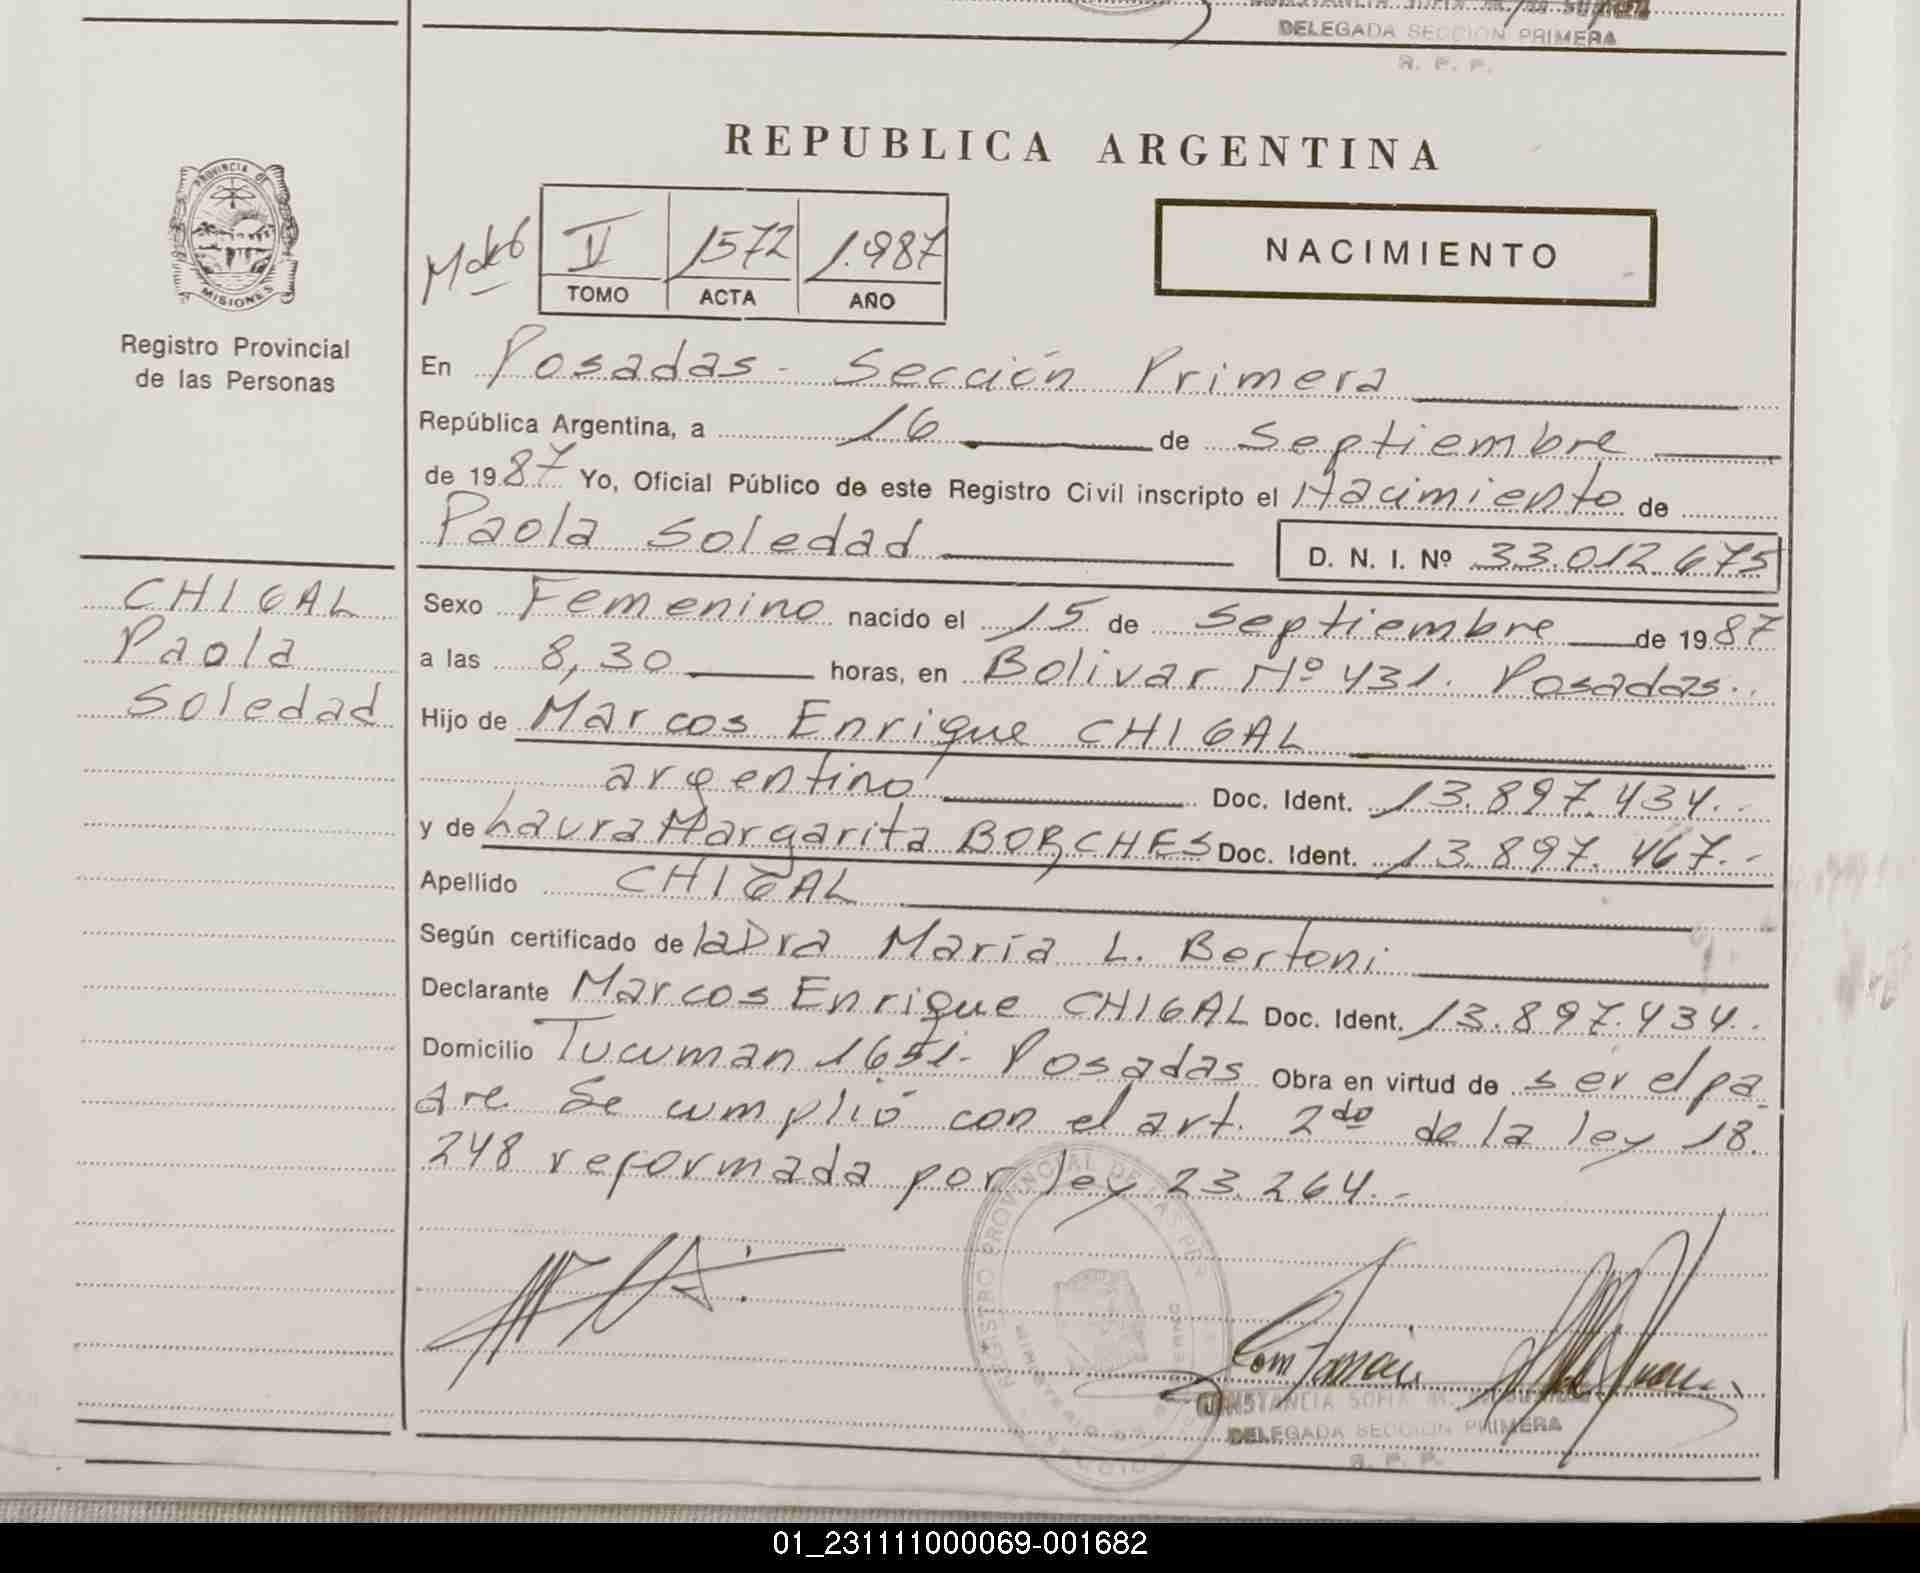 DELEGADA SECCION PRIMERA
R. P. P.
REPUBLICA ARGENTINA
PROVINCIA DE MISIONES
Registro Provincial
de las Personas
II 1572 1.987
TOMO ACTA AÑO
NACIMIENTO
En Posadas - Sección Primera
República Argentina, a 16 de Septiembre
de 1987 Yo, Oficial Público de este Registro Civil inscripto el Nacimiento de
Paola Soledad
D. N. I. Nº 33.012.675
CHIGAL
Paola
Soledad
Sexo Femenino nacido el 15 de Septiembre de 1987
a las 8,30 horas, en Bolivar Nº 431. Posadas.
Hijo de Marcos Enrique CHIGAL
argentino Doc. Ident. 13.897.434.-
y de Laura Margarita BORCHES Doc. Ident. 13.897.467.-
Apellido CHIGAL
Según certificado de la Dra María L. Bertoni
Declarante Marcos Enrique CHIGAL Doc. Ident. 13.897.434.
Domicilio Tucuman 1651- Posadas Obra en virtud de ser el pa
dre Se cumplió con el art. 2do de la ley 18.
248 reformada por ley 23.264.-
REGISTRO PROVINCIAL DE LAS PER
MINISTERIO DE
CONSTANCIA SOFIA
DELEGADA SECCION PRIMERA
R. P. P.
01_231111000069-001682